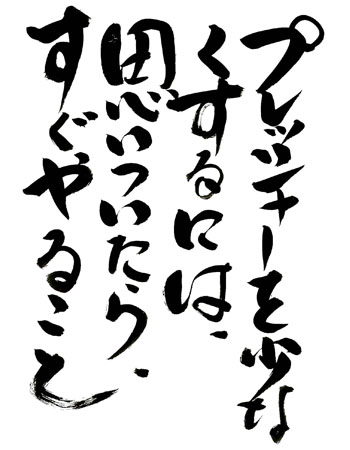 プレッチーを少な
くするには、
思いついたら、
すぐやること